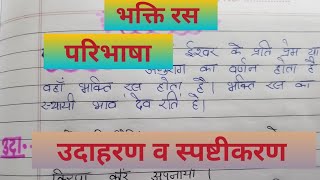 भक्ति रस
परिभाषा
ईश्वर के प्रति प्रेम या
अनुराग का वर्णन होता है
वहाँ भक्ति रस होता है। भक्ति रस का
स्थायी भाव 'देव रति' है।
उदा०
उदाहरण व स्पष्टीकरण